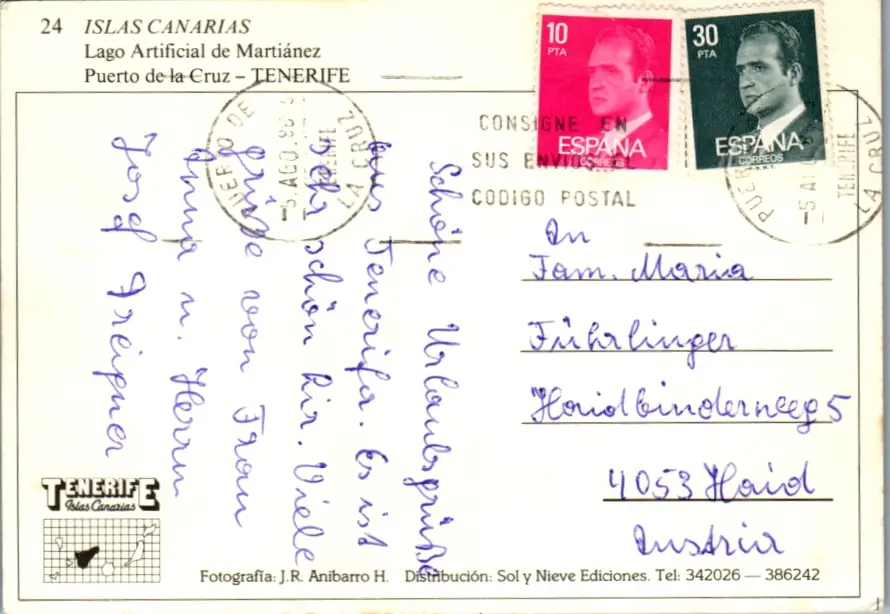 24 ISLAS CANARIAS
Lago Artificial de Martiánez
Puerto de la Cruz – TENERIFE
10
PTA
ESPAÑA
CORREOS
30
PTA
ESPAÑA
CORREOS
PUERTO DE LA CRUZ
-5 AGO. 86
TENERIFE
CONSIGNE EN
SUS ENVIOS EL
CODIGO POSTAL
PUERTO
-5 AG
TENERIFE
LA CRUZ
Schöne Urlaubsgrüße
aus Tenerifa. Es ist
sehr schön hir. Viele
Grüße von Frau
Anna u. Herrn
Josef Freigner
An
Fam. Maria
Führlinger
Haidbinderweeg 5
4053 Haid
Austria
TENERIFE
Islas Canarias
Fotografía: J.R. Anibarro H. Distribución: Sol y Nieve Ediciones. Tel: 342026 — 386242